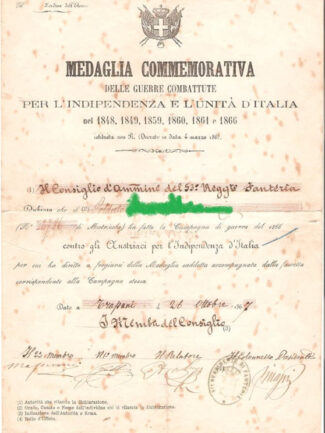 MEDAGLIA COMMEMORATIVA
DELLE GUERRE COMBATTUTE
PER L'INDIPENDENZA E L'UNITÀ D'ITALIA
nel 1848, 1849, 1859, 1860, 1861 e 1866
istituita con R. Decreto in data 4 marzo 1865.
(1) Il Consiglio d'Ammine del 53° Reggto Fanteria
Dichiara che il (2)
(N° di Matricola) ha fatto la Campagna di guerra del 1866
contro gli Austriaci per l'Indipendenza d'Italia
per cui ha diritto a fregiarsi della Medaglia suddetta accompagnata dalla fascetta
corrispondente alla Campagna stessa.
Dato a Trapani il 26 Ottobre 1867
I Membri del Consiglio (3)
Il 2° membro Il 1° membro Il Relatore Il Colonnello Presidente
(1) Autorità che rilascia la dichiarazione.
(2) Grado, Casato e Nome dell'individuo cui si rilascia la dichiarazione.
(3) Indicazione dell'Autorità e firma.
(4) Bollo d'ufficio.